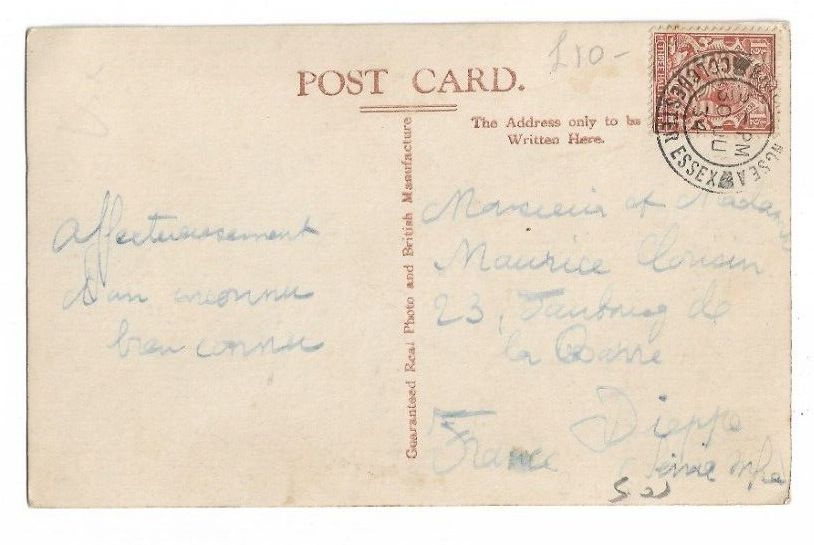 £10-
POST CARD.
The Address only to be
Written Here.
Guaranteed Real Photo and British Manufacture
COLCHESTER ESSEX
PM
AU
34
Affectueusement
d'un inconnu
bien connu
Monsieur et Madame
Maurice
23, Faubourg de
la Barre
Dieppe
France
Seine Infre